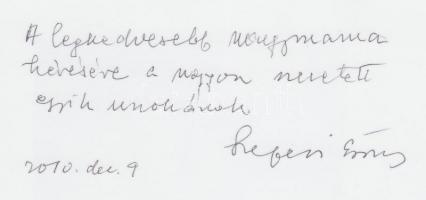 A legkedvesebb nagymama
kérésére a nagyon szeretett
egyik unokának
2010. dec. 9